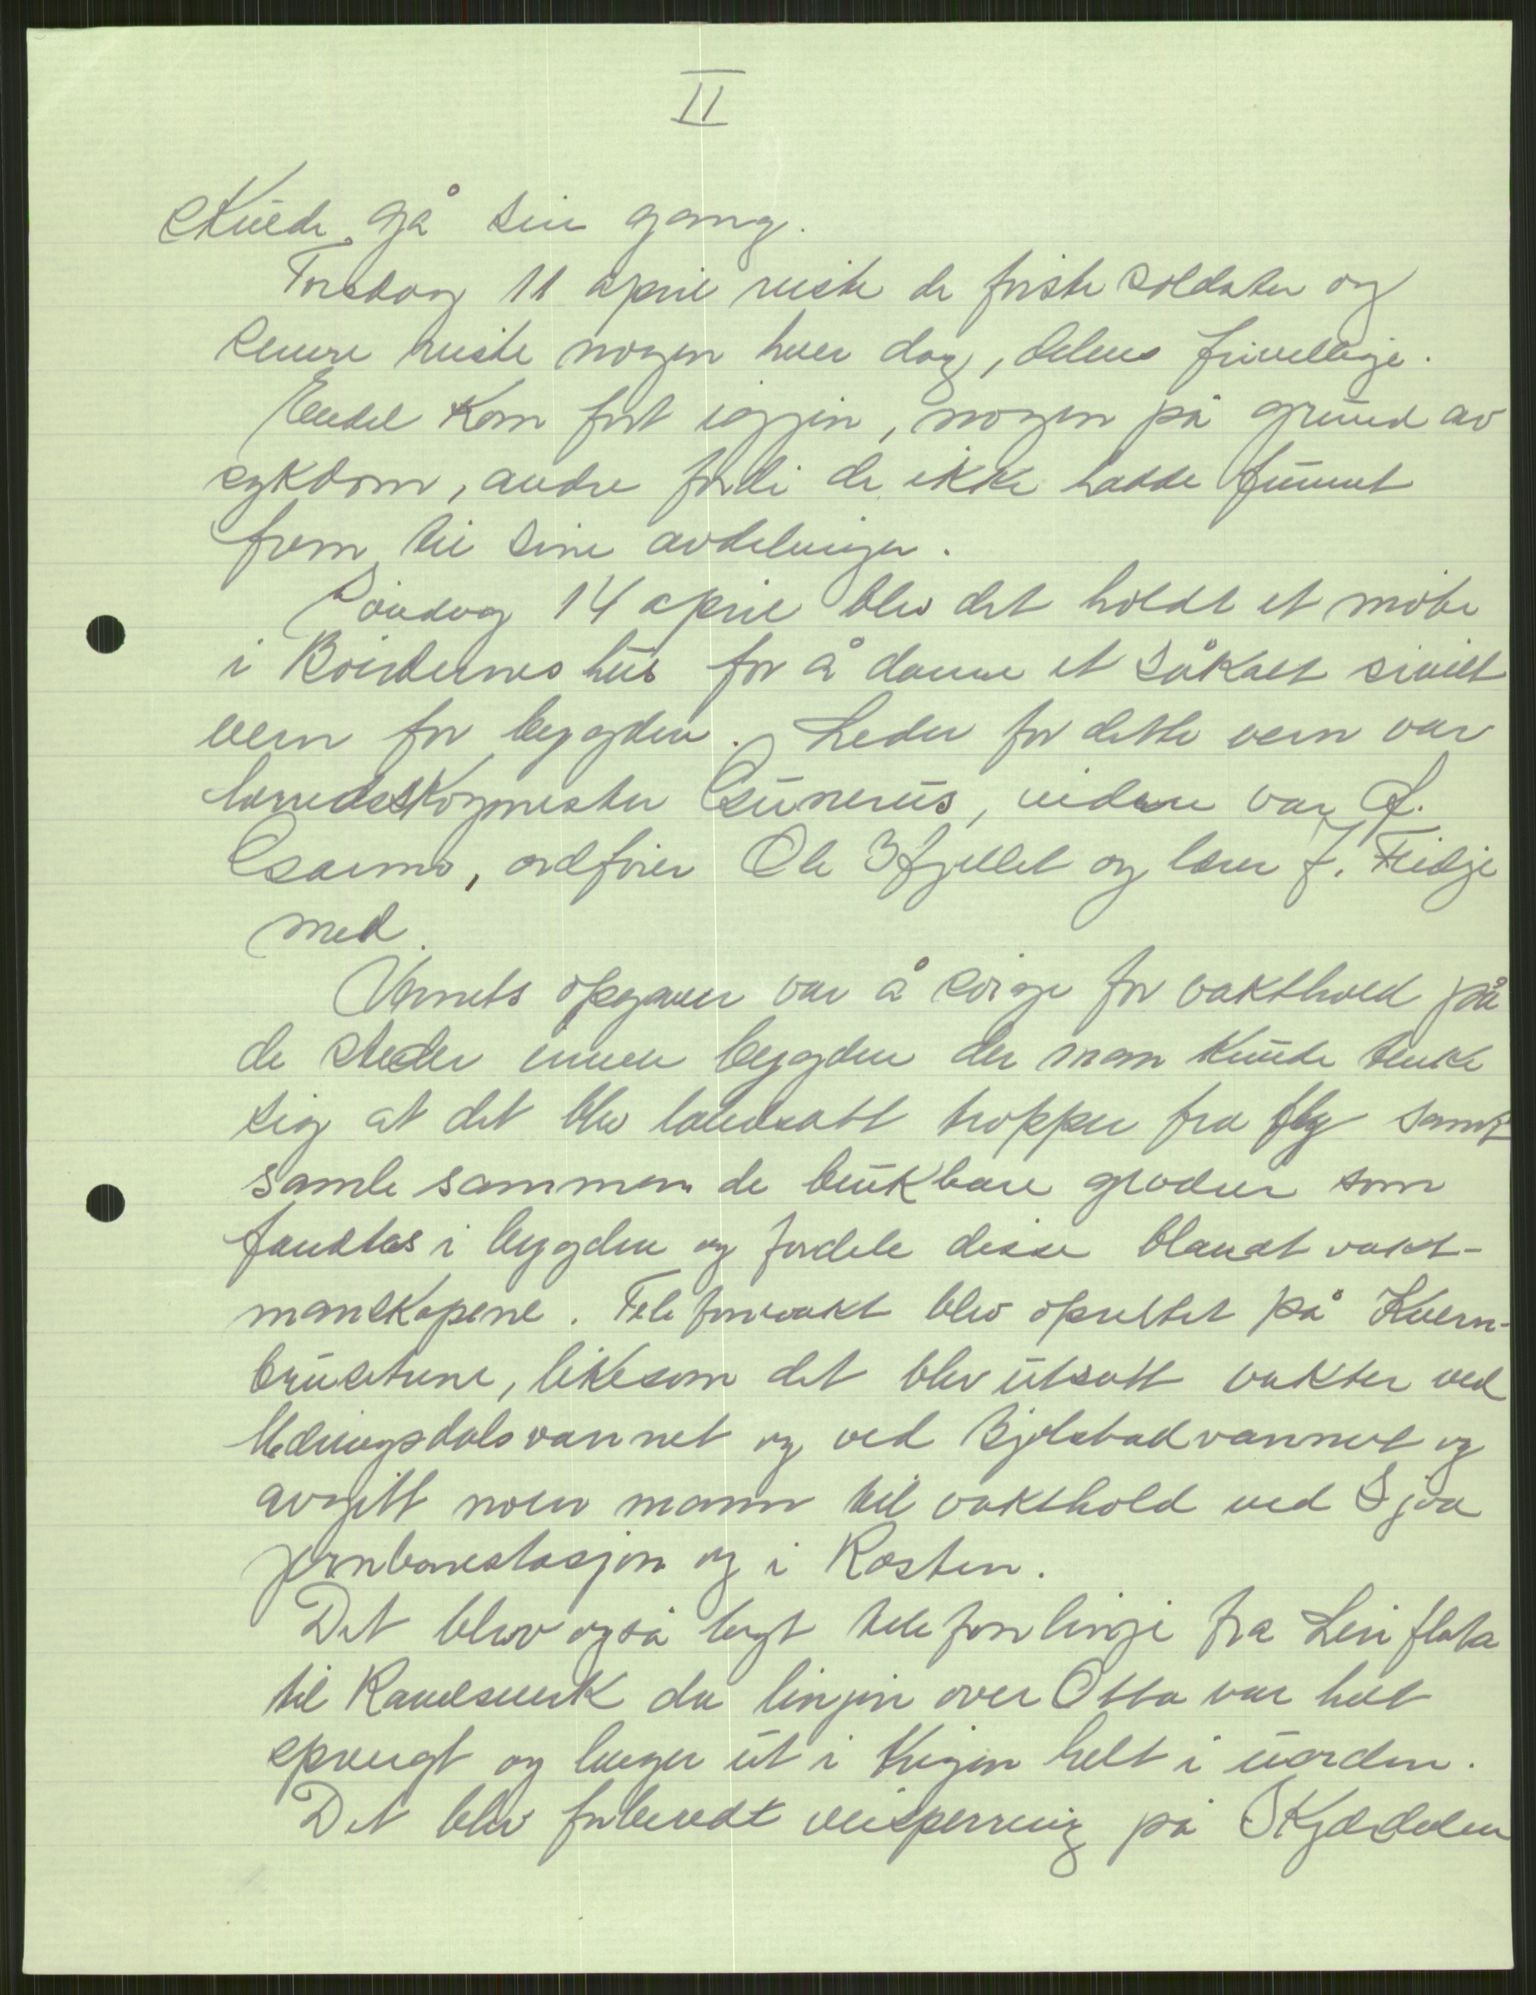 II
skulde gå sin gang.
Torsdag 11 april reiste de første soldater og
senere reiste nogen hver dag, delens frivellige.
Endel kom fort igjen, nogen på grund av
sykdom, andre fordi de ikke hadde funnet
frem til sine avdelinger.
Søndag 14 april blev det holdt et møte
i Bøndernes hus for å danne et såkalt sivilt
vern for bygden. Leder for dette vern var
herredsskogmester Gunerius, videre var
ordfører Ole Ifjellet og lærer J. Feidje
med.
Vernets opgaver var å sørge for vakthold på
de steder innen bygden der man kunde tenke
sig at det blev landsatt tropper fra fly samt
samle sammen de brukbare geværer som
fandtes i bygden og fordele disse blandt vakt-
manskapene. Telefonvakt blev oprettet på Kvern-
brustune, likesom det blev utsatt vakter ved
vannet og ved Bjølstadvannet og
avgitt noen mann til vakthold ved Sjoa
jernbanestasjon og i Rosten.
Det blev også lagt telefonlinje fra Leirflata
til Randsverk da linjen over Otta var helt
sprengt og lenger ut i krigen helt i uorden.
Det blev forberedt veisperring på